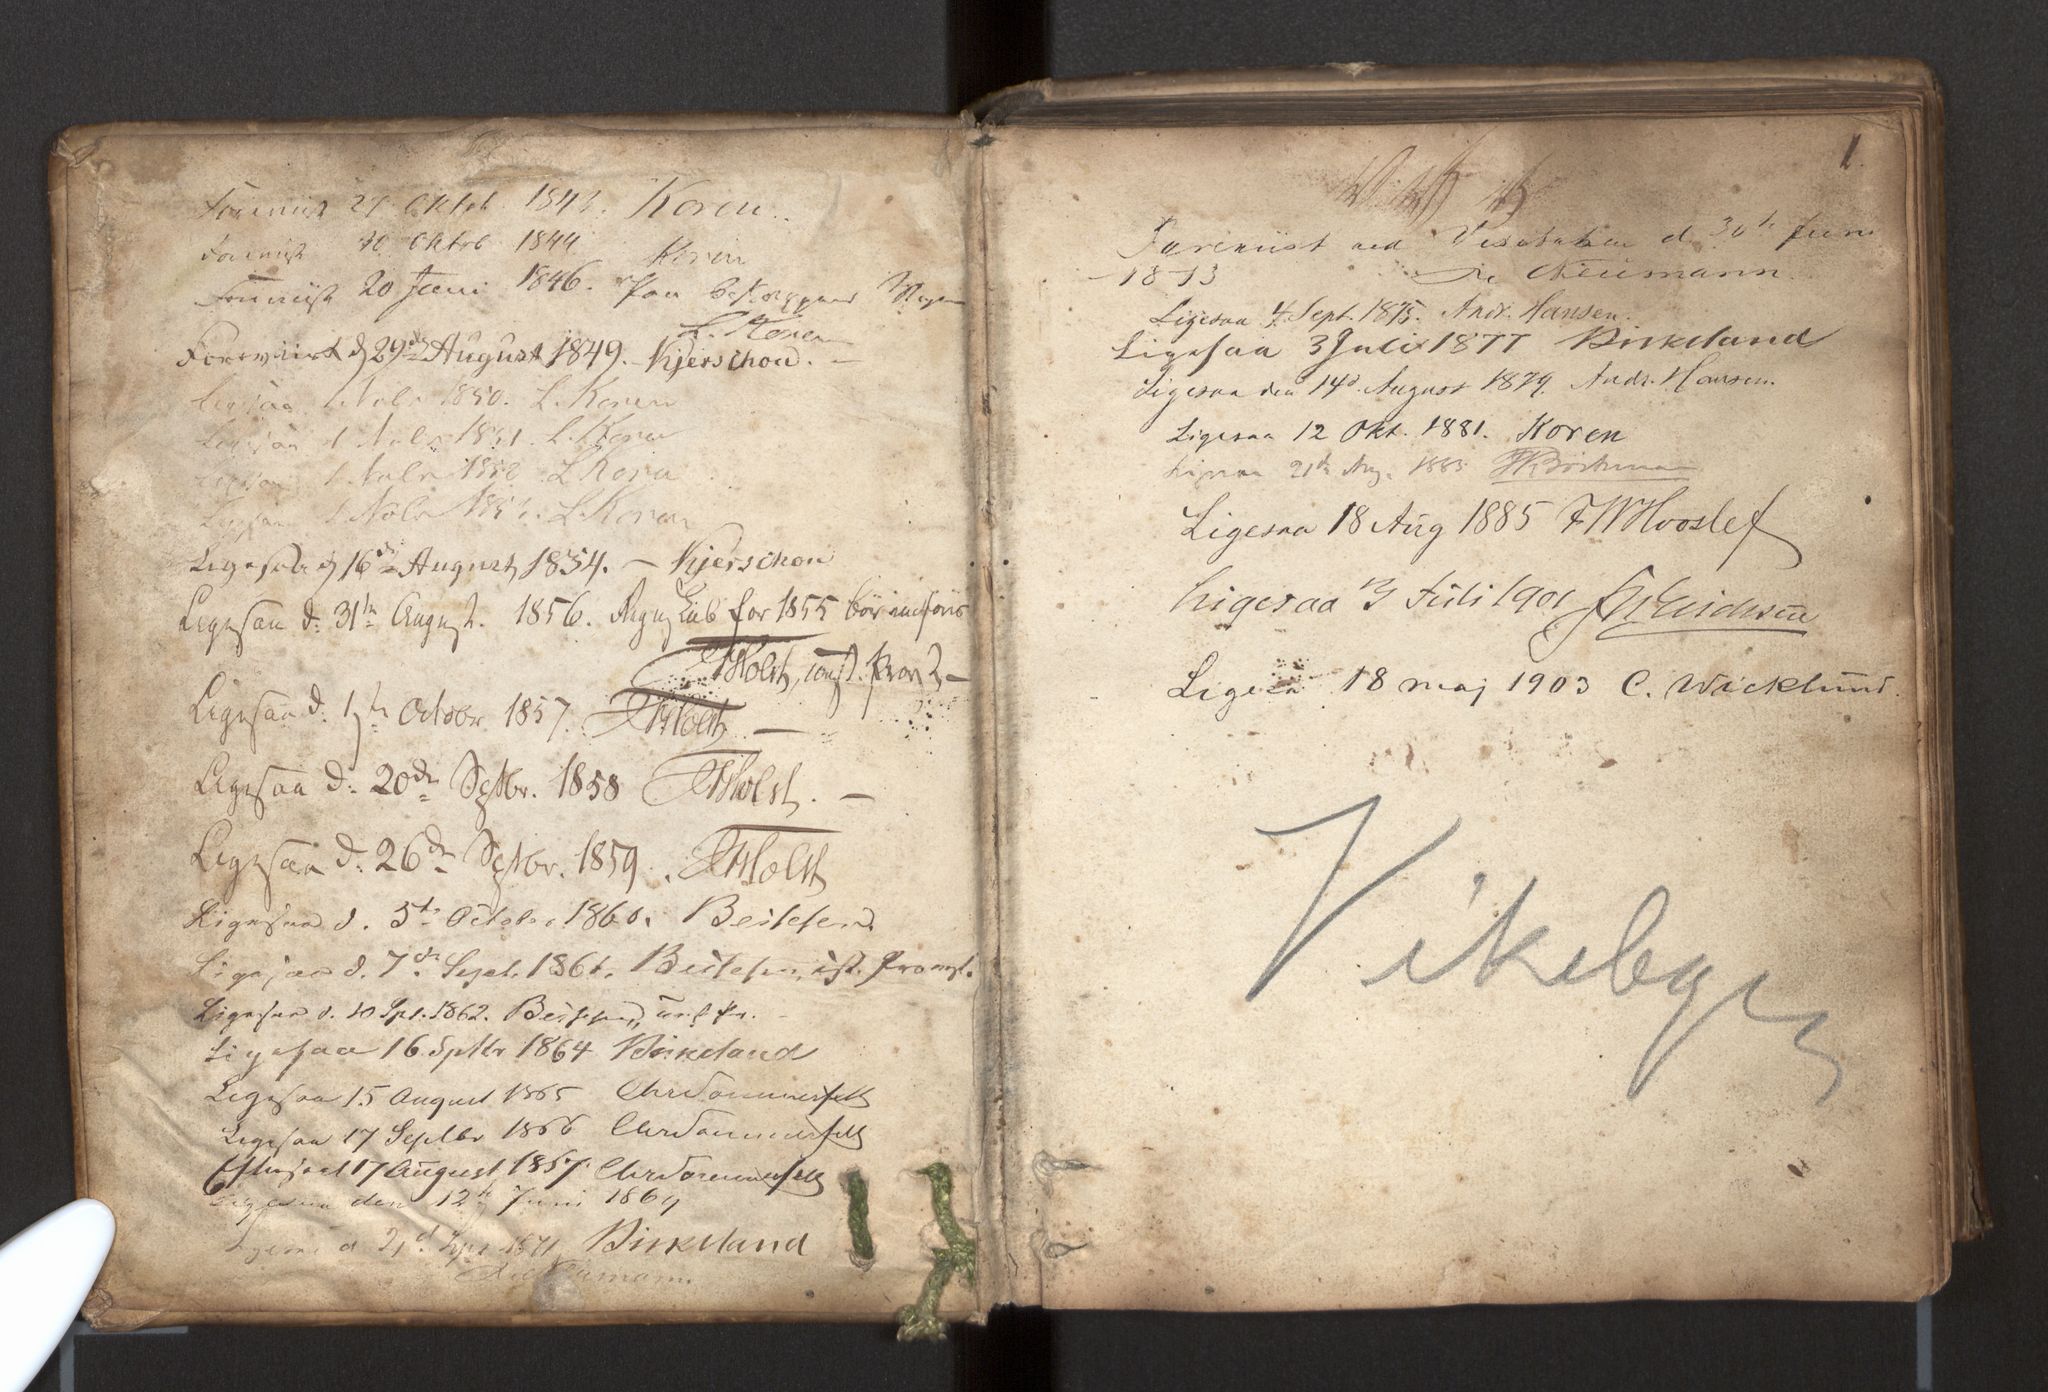 Foreviist 27 Oktob 1843. Koren
Foreviist 10 Oktob 1844 Koren
Foreviist 20 Juni 1846. Paa
L. Koren
Foreviist d 29de August 1849. Kjerschow. —
Ligesaa 1 Novbr 1850. L. Koren
Ligesaa 1 Novbr 1851. L. Koren
Ligesaa 1 Novbr 1852 L Koren
Ligesaa 1 Novbr L. Koren
Ligesaa d 16de August 1854. — Kjerschow
Ligesaa d: 31te August. 1856. Regnskab for 1855 bör
JHolst, const. Provst —
Ligesaa d. 1ste Octobr 1857. JHolst. —
Ligesaa d: 20de Septbr. 1858 JHolst. —
Ligesaa d. 26de Septbr. 1859. JHolst
Ligesaa d. 5te October 1860.
Ligesaa d. 7de Sept. 1861. Provst.
Ligesaa d. 10 Spt. 1862.
Ligesaa 16 Sptbr 1864 Birkeland
Ligesaa 15 August 1865 Chr Sommerfelt
Ligesaa 17 Septbr 1866 Chr Sommerfelt
Efterseet 17 August 1867. Chr Sommerfelt
Ligesaa den 12te Juni 1869
Birkeland
Ligesaa d 21d Spt 1871
Neumann.
1.
Foreviist ved Visitatsen d 30te Juni
1873 Neumann.
Ligesaa 4 Sept. 1875. Andr. Hansen.
Ligesaa 3 Juli 1877 Birkeland
Ligesaa den 14d. August 1879. Andr. Hansen.
Ligesaa 12 Okt. 1881. Koren
Ligesaa 21de Aug. 1883
Ligesaa 18 Aug 1885 F W Hvoslef
Ligesaa 13 Juli 1901
Ligesaa 18 maj 1903 C. Wicklund.
Vikeby